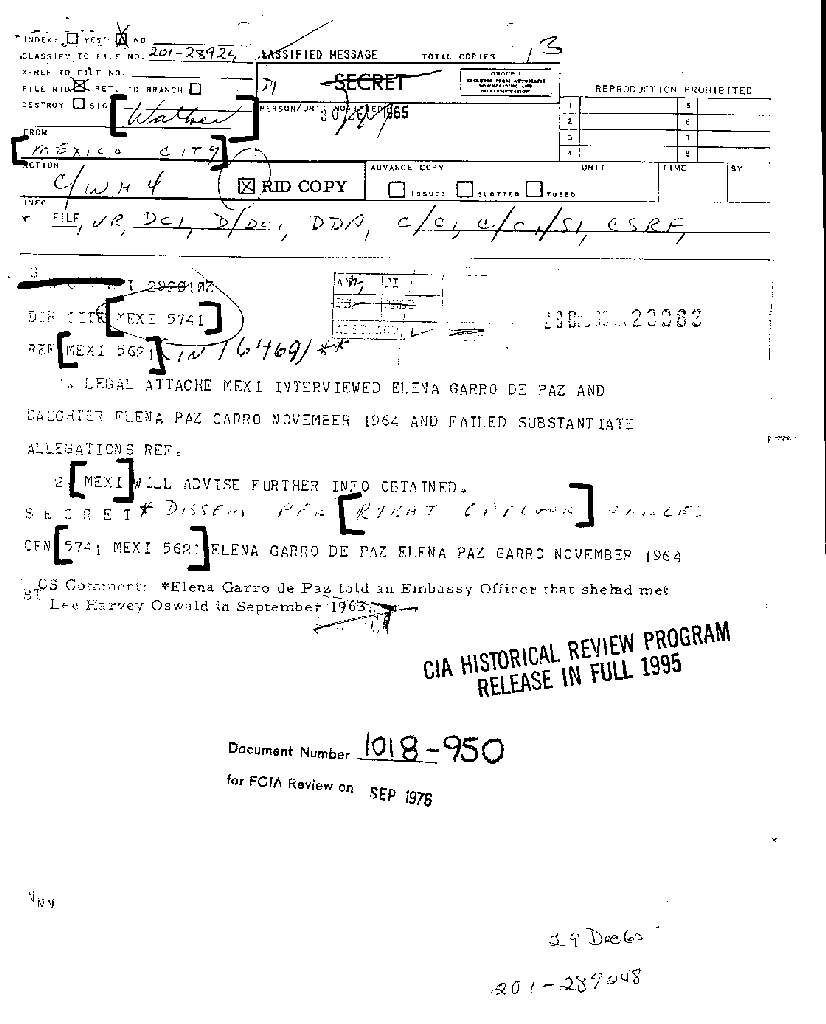 INDEX: YES NO
CLASSIFY TO FILE NO. 201-28924
X-REF TO FILE NO.
FILE RID RET. TO BRANCH
DESTROY SIG.
CLASSIFIED MESSAGE TOTAL COPIES 13
SECRET
REPRODUCTION PROHIBITED
PERSON/UNIT NOTIFIED
1 5
2 6
3 7
4 8
FROM
MEXICO CITY
ACTION
C/WH 4
RID COPY
ADVANCE COPY
ISSUED SLOTTED TUBED
UNIT TIME BY
INFO
FILE, VR, DCI, D/DCI, DDP, C/CI, C/CI/SI, CSRF,
DIR CITE [MEXI 5741]
REF [MEXI 5621] (IN 16469) **
1. LEGAL ATTACHE MEXI INTERVIEWED ELENA GARRO DE PAZ AND
DAUGHTER ELENA PAZ GARRO NOVEMBER 1964 AND FAILED SUBSTANTIATE
ALLEGATIONS REF.
2. [MEXI] WILL ADVISE FURTHER INFO OBTAINED.
S E C R E T * DISSEM PER [RYBAT
CFN [5741 MEXI 5621] ELENA GARRO DE PAZ ELENA PAZ GARRO NOVEMBER 1964
CS Comment: *Elena Garro de Paz told an Embassy Officer that shehad met
Lee Harvey Oswald in September 1963.
CIA HISTORICAL REVIEW PROGRAM
RELEASE IN FULL 1995
Document Number 1018-950
for FOIA Review on SEP 1976
29 Dec 65
201-289048